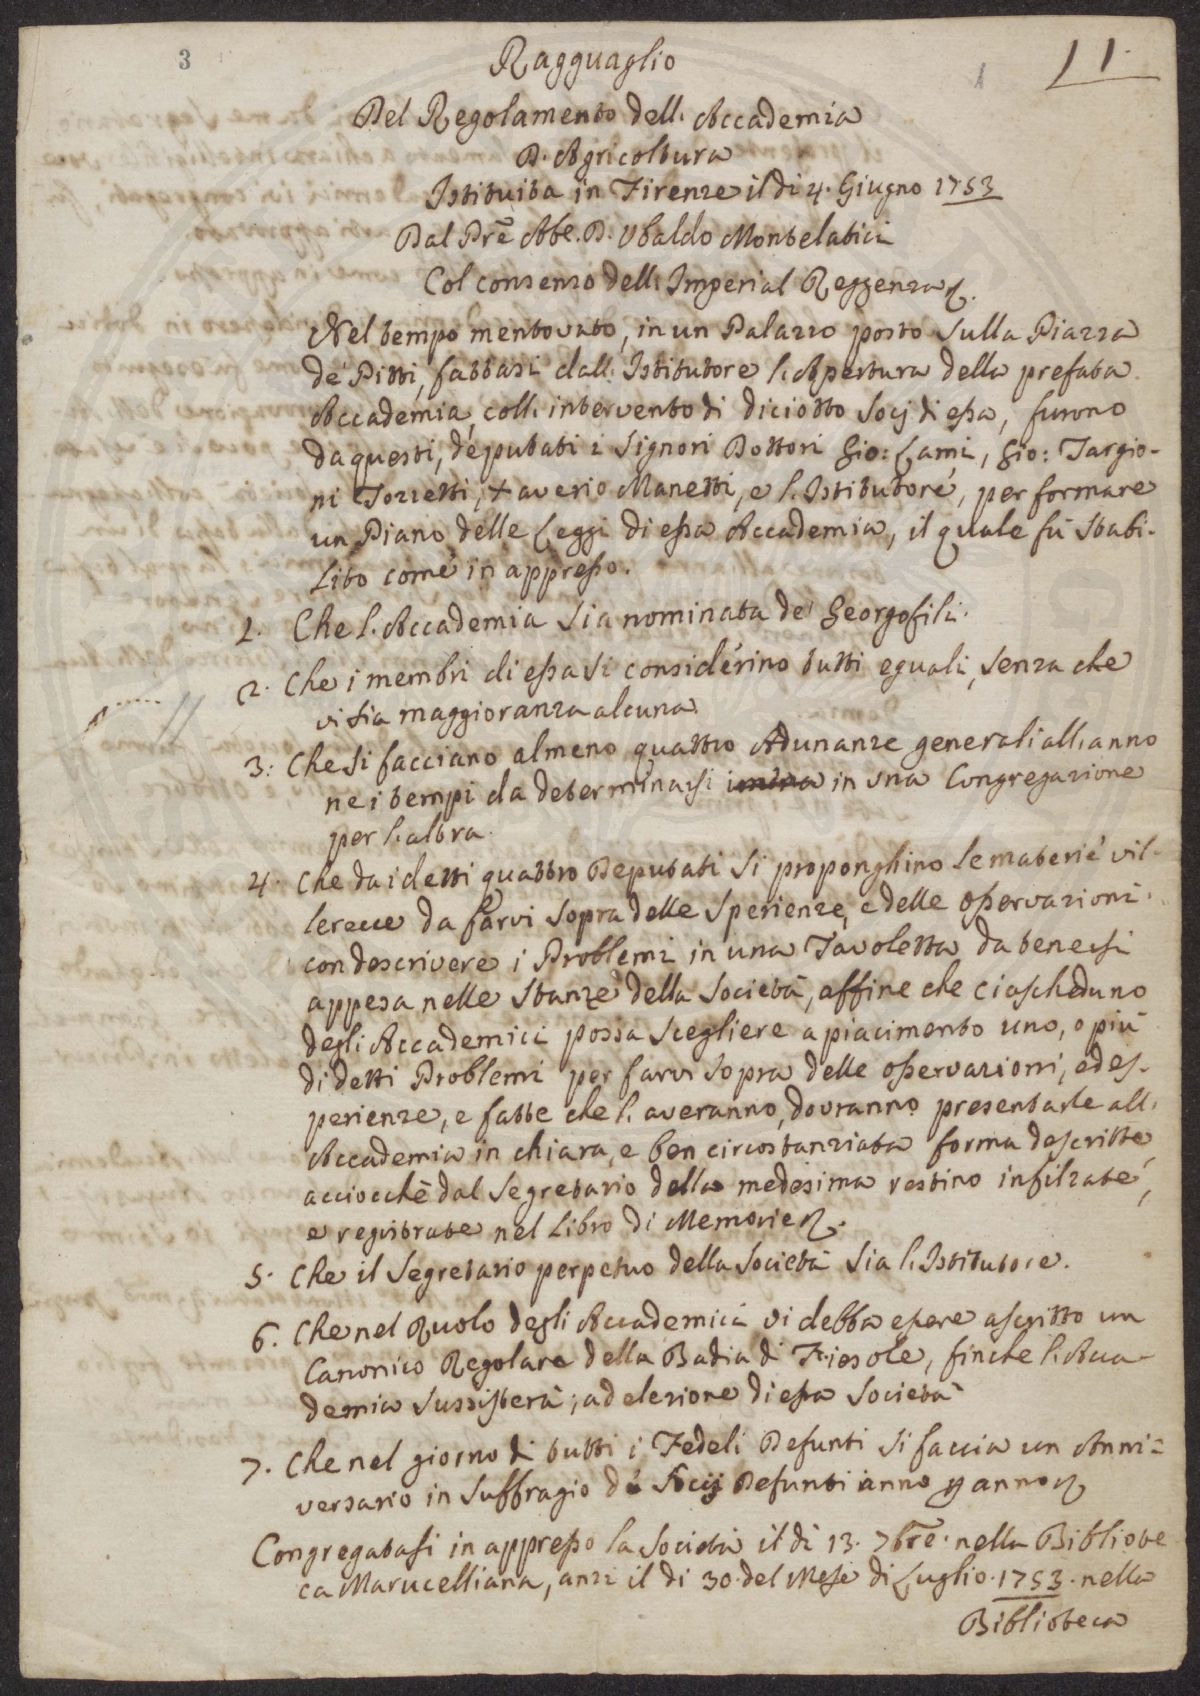 3
11.
1
Ragguaglio
Del Regolamento dell. Accademia
D. Agricoltura
Istituita in Firenze il di 4. Giugno 1753
Dal Prē Abe. D. Ubaldo Montelatici
Col consenso dell. Imperial Reggenza.
Nel tempo mentovato, in un Palazzo posto sulla Piazza
de' Pitti, fattasi dall. Istitutore l. Apertura della prefata
Accademia, coll. intervento di diciotto Socj di essa, furono
da questi, deputati i Signori Dottori Gio: Lami, Gio: Targio-
ni Tozzetti, Xaverio Manetti, e l. Istitutore, per formare
un Piano delle Leggi di essa Accademia, il quale fù stabi-
lito come in appresso.
1. Che l. Accademia sia nominata de' Georgofili.
2. Che i membri di essa si considerino tutti eguali, senza che
vi sia maggioranza alcuna.
3: Che si facciano almeno quattro Adunanze generali all. anno
ne i tempi da determinarsi in una Congregazione
per l. altra.
4. Che da i detti quattro Deputati si proponghino le materie vil-
lerecce da farvi sopra delle sperienze, e delle osservazioni.
con descrivere i Problemi in una Tavoletta da tenersi
appesa nelle stanze della Società, affine che ciascheduno
degli Accademici possa scegliere a piacimento uno, o più
di detti Problemi per farvi sopra delle osservazioni, ed es-
perienze, e fatte che l. averanno, dovranno presentarle all.
Accademia in chiara, e ben circostanziata forma descritte,
acciocchè dal Segretario della medesima restino infilzate,
e registrate nel Libro di Memorie.
5. Che il Segretario perpetuo della Società sia l. Istitutore.
6. Che nel Ruolo degli Accademici vi debba essere ascritto un
Canonico Regolare della Badia di Fiesole, finche l. Acca-
demia sussisterà; ad elezione di essa Società
7. Che nel giorno di tutti i Fedeli Defunti si faccia un Anni=
versario in suffragio de Socij Defunti anno p anno
Congregatasi in appresso la Società il di 13. 7brē. nella Bibliote
ca Marucelliana, anzi il di 30. del Mese di Luglio. 1753. nella
Biblioteca